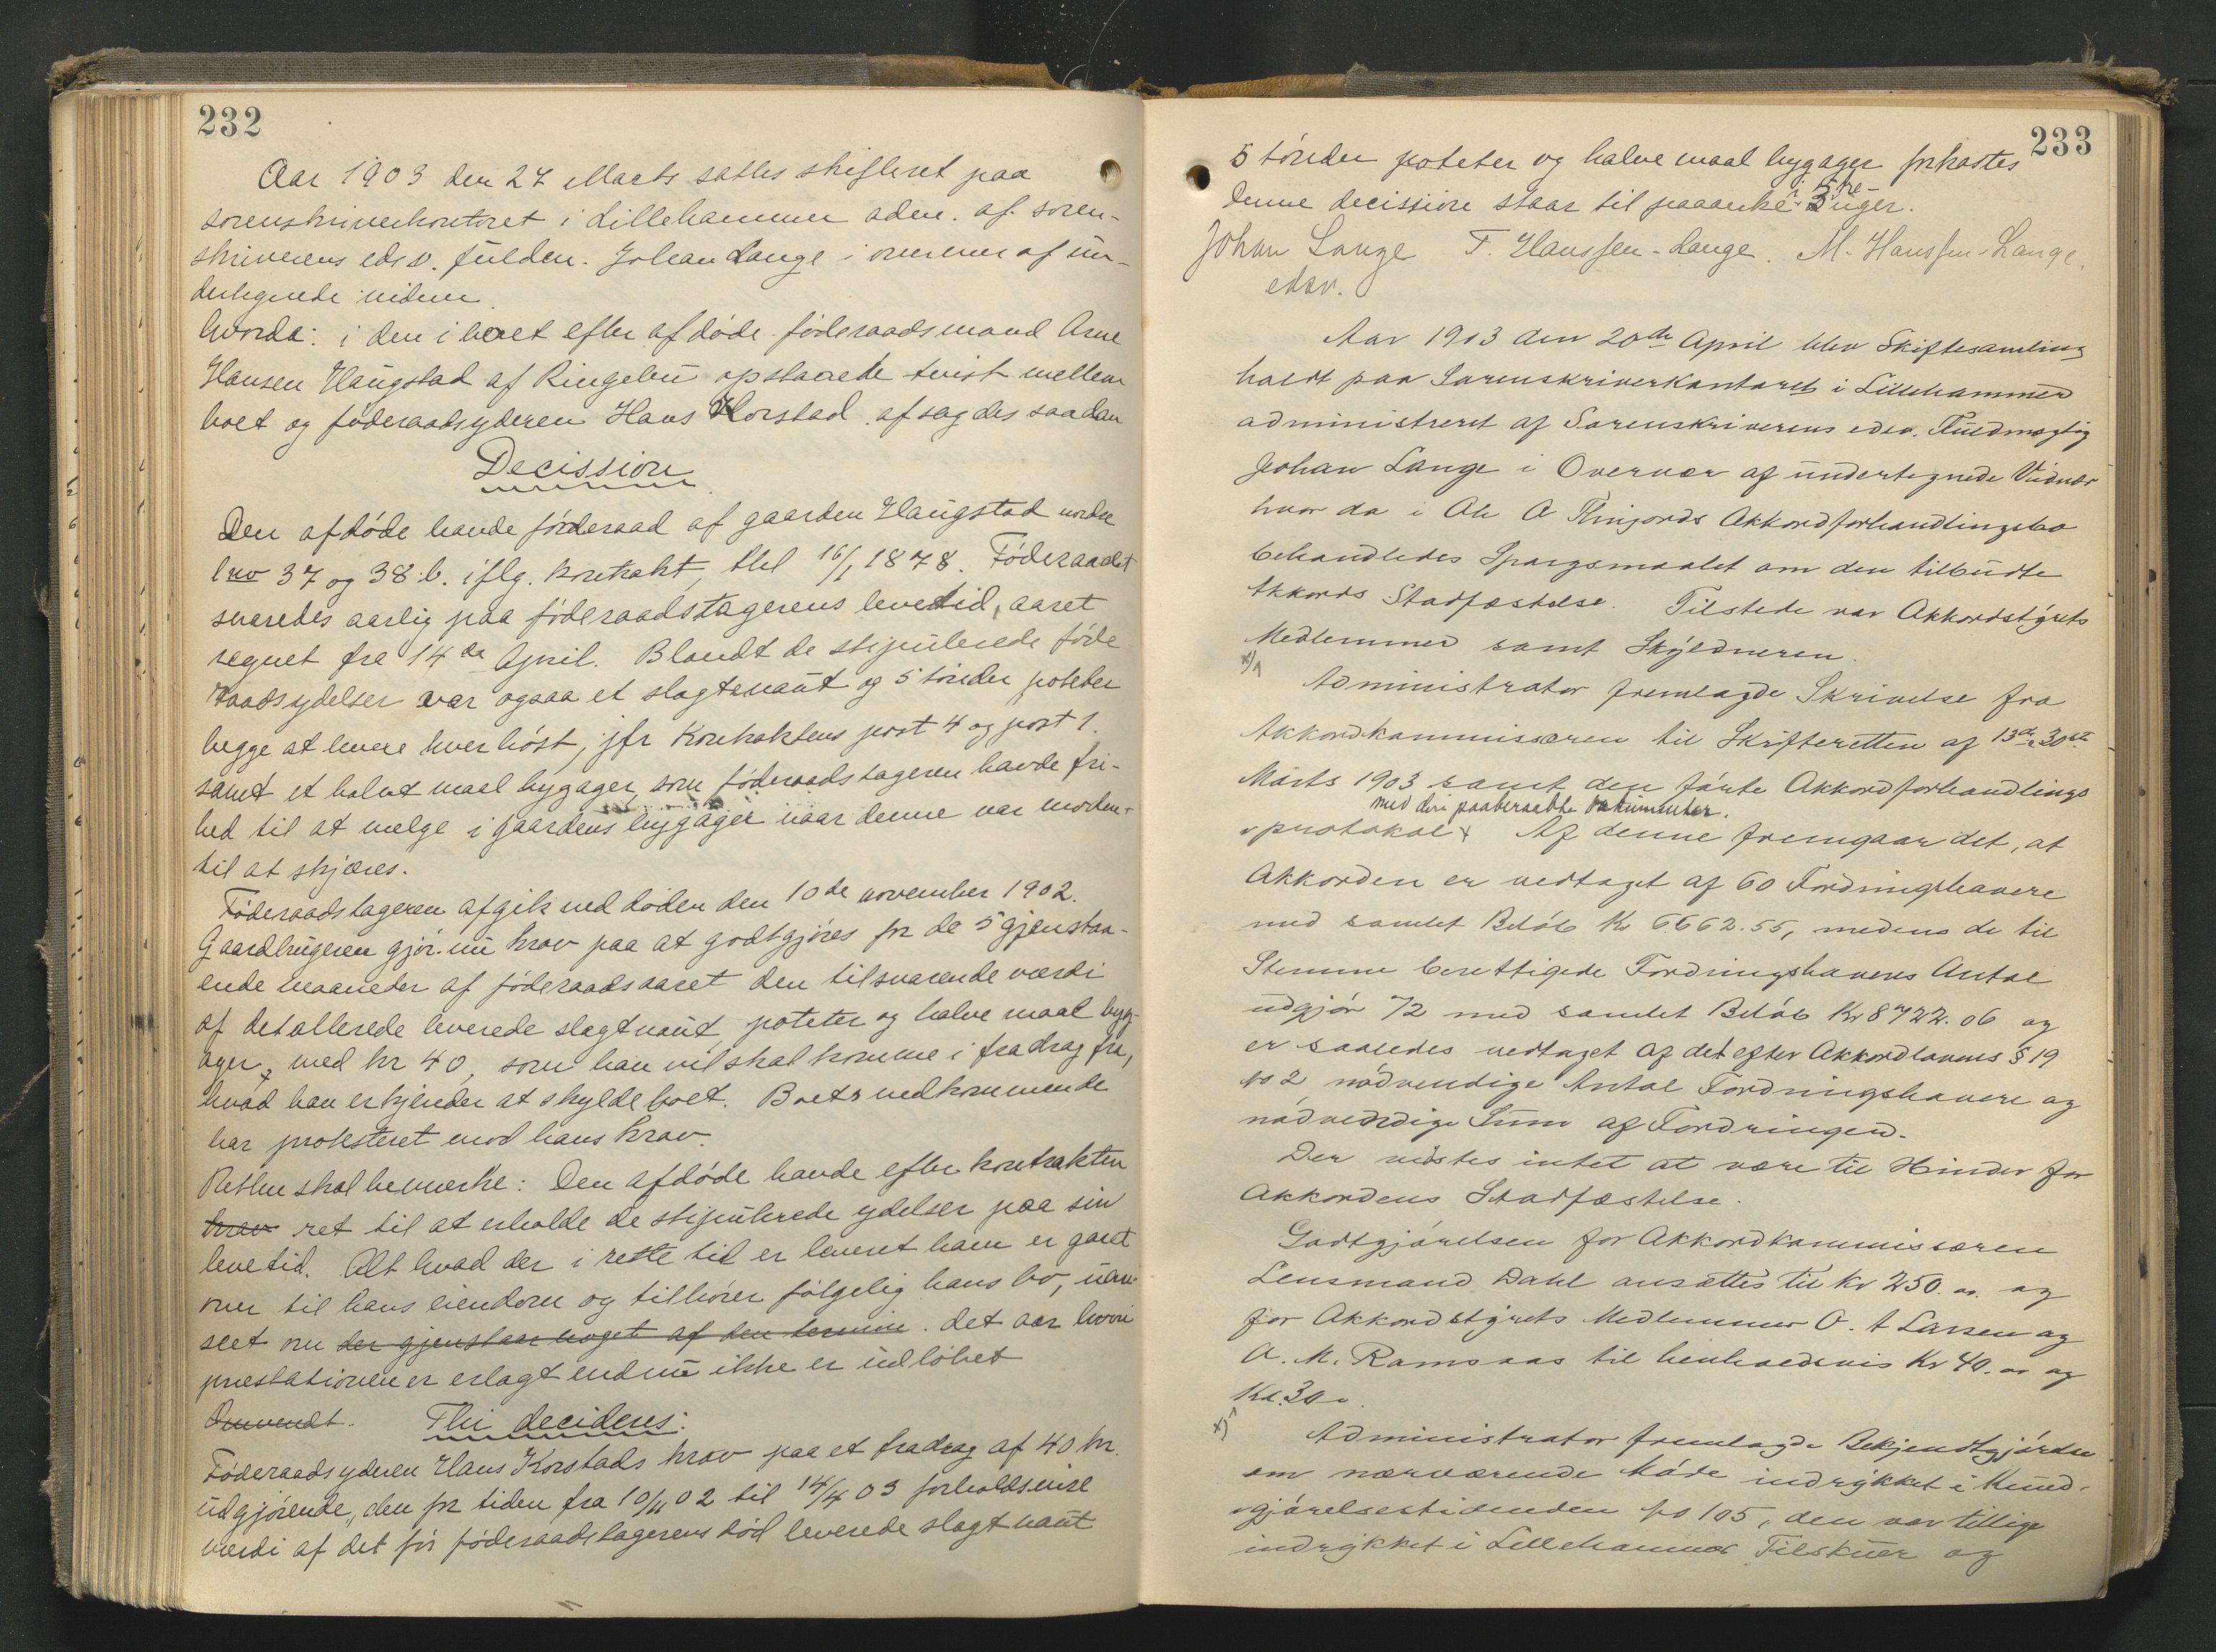 232
Aar 1903 den 27 Marts sattes skifteret paa
sorenskriverkontoret i Lillehammer adm. af soren-
skriverens edsv. fuldm. Johan Lange i overvær af un-
dertegnede vidner.
Hvorda: i den i boet efter afdøde føderaadsmand Arne
Hansen Haugstad af Ringebu opstaaede tvist mellem
boet og føderaadsyderen Hans Korstad afsagdes saadan
Decission
Den afdøde havde føderaad af gaarden Haugstad nordre
lno 37 og 38 b. iflg. kontrakt, thl 16/1 1878. Føderaadet
svaredes aarlig paa føderaadstagerens levetid, aaret
regnet fra 14de April. Blandt de stipulerede føde
raadsydelser var ogsaa et slagtenaut og 5 tønder poteter
begge at levere hver høst, jfr Kontraktens post 4 og post 1.
samt et halvt maal bygager, som føderaadstageren havde fri-
hed til at vælge i gaardens bygager naar denne var moden
til at skjæres.
Føderaadstageren afgik ved døden den 10de november 1902.
Gaardbrugeren gjør nu krav paa at godtgjøres for de 5 gjenstaa-
ende maaneder af føderaadsaaret den tilsvarende værdi
af det allerede leverede slagtnaut, poteter og halve maal byg-
ager, med kr 40, som han vil skal komme i fradrag fra,
hvad han erkjender at skylde boet. Boets vedkommende
har protesteret mod hans krav.
Retten skal bemærke: Den afdøde havde efter kontrakten
krav ret til at erholde de stipulerede ydelser paa sin
levetid. Alt hvad der i rette tid er leveret ham er gaaet
over til hans eiendom og tilhører følgelig hans bo, uan-
seet om der gjenstaar noget af den termin. det aar hvori
præstationen er erlagt endnu ikke er udløbet
Omvendt. Thi decideres:
Føderaadsyderen Hans Korstads krav paa et fradrag af 40 kr.
udgjørende, den for tiden fra 10/11 02 til 14/4 03 forholdsvise
værdi af det før føderaadstagerens død leverede slagtnaut
233
5 tønder poteter og halve maal bygager forkastes
Denne decission staar til paaanke i 3 tre- uger.
Johan Lange F. Hanssen-Lange. M. Hanssen-Lange.
edsv.
Aar 1903 den 20de April blev Skiftesamling
holdt paa Sorenskriverkontoret i Lillehammer
administreret af Sorenskriverens edsv. Fuldmægtig
Johan Lange i Overvær af undertegnede Vidner
hvor da i Akkordforhandlingsbo
behandledes Spørgsmaalet om den tilbudte
Akkords Stadfæstelse. Tilstede var Akkordstyrets
Medlemmer samt Skyldneren.
x)
Administrator fremlagde Skrivelse fra
Akkordkommissæren til Skifteretten af 13de & 30te
Marts 1903 samt den førte Akkordforhandlings
med deri paaberaabte Dokumenter.
protokol x Af denne fremgaar det, at
Akkorden er vedtaget af 60 Fordringshavere
med samlet Beløb Kr 6662.55, medens de til
Stemme berettigede Fordringshaveres Antal
udgjør 72 med samlet Beløb Kr 8722.06 og
er saaledes vedtaget af det efter Akkordlovens § 19
no 2 nødvendige Antal Fordringshavere og
nødvendige Sum af Fordringer.
Der vidstes intet at være til Hinder for
Akkordens Stadfæstelse.
Godtgjørelsen for Akkordkommissæren
Lensmand Dahl ansættes til Kr 250.00 og
for Akkordstyrets Medlemmer O. A Larsen og
A. M. Ramsaas til henholdsvis Kr 40.00 og
Kr. 30 "
x)
Administrator fremlagde Bekjendtgjørelse
om nærværende Møde indrykket i Kund-
gjørelsestidenden no 105, den var tillige
indrykket i Lillehammer Tilskuer og